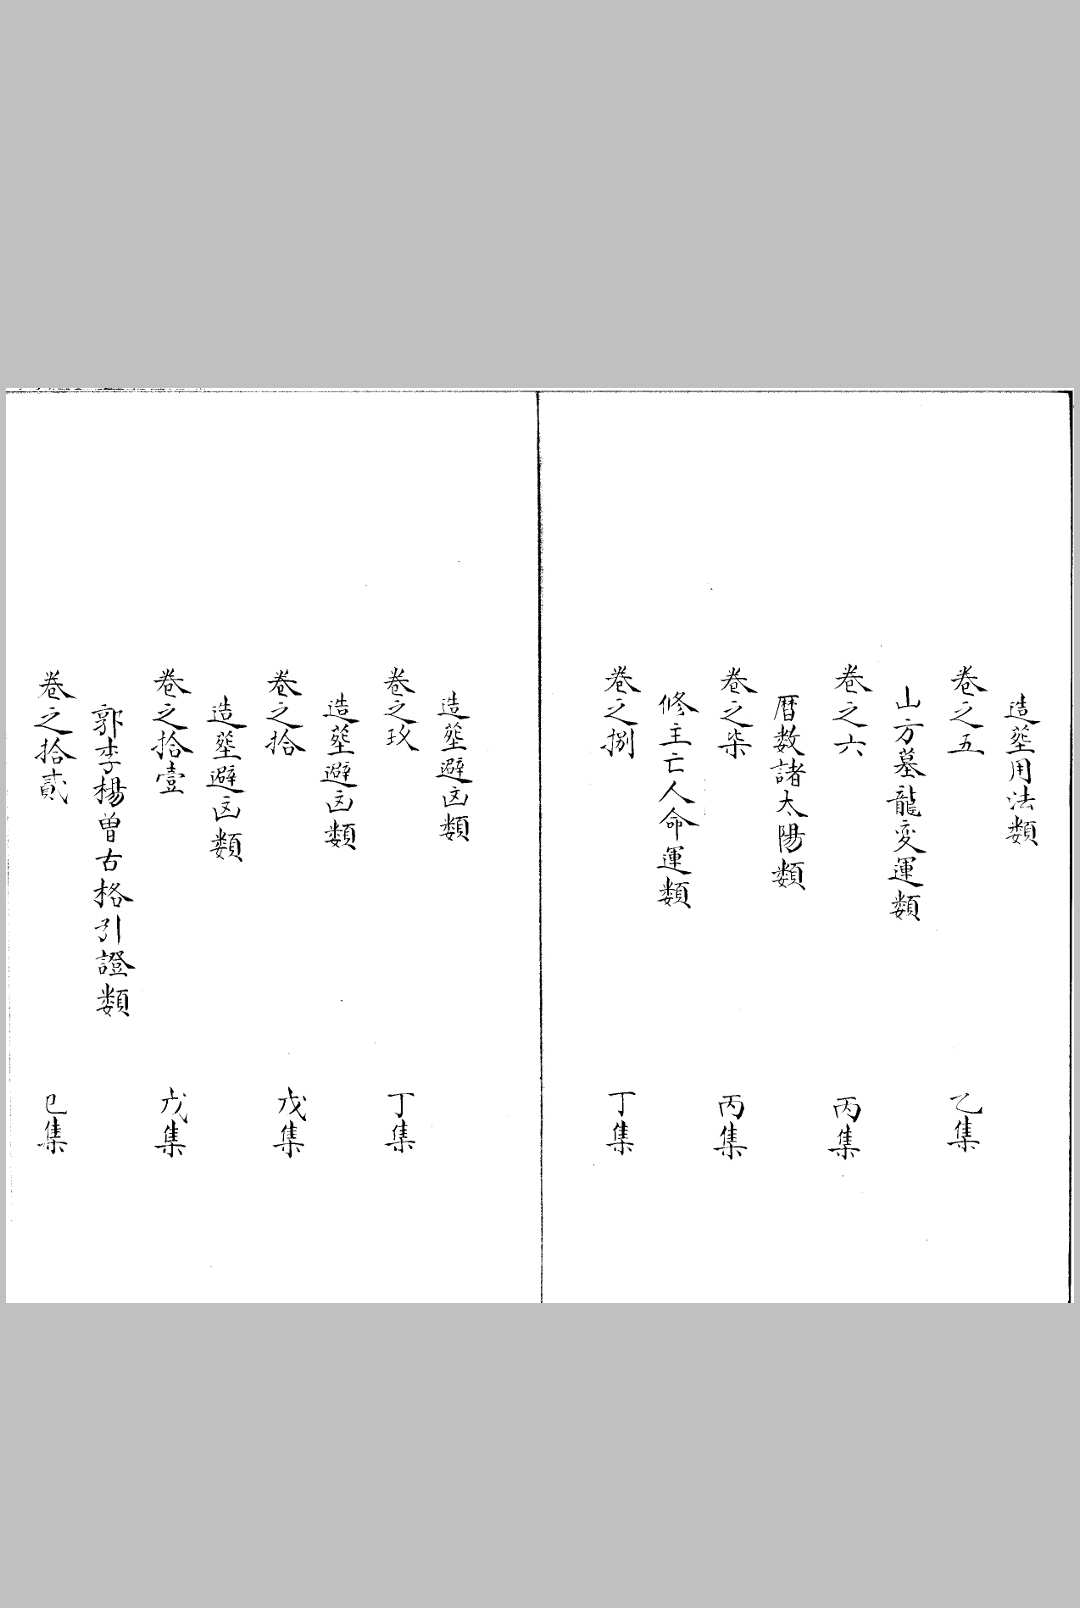 造塟用法類
卷之五 乙集
山方墓龍変運類
卷之六 丙集
暦数諸太陽類
卷之柒 丙集
修主亡人命運類
卷之捌 丁集
造塟避凶類
卷之玖 丁集
造塟避凶類
卷之拾 戊集
造塟避凶類
卷之拾壹 戊集
郭李楊曽古格引證類
卷之拾貳 己集